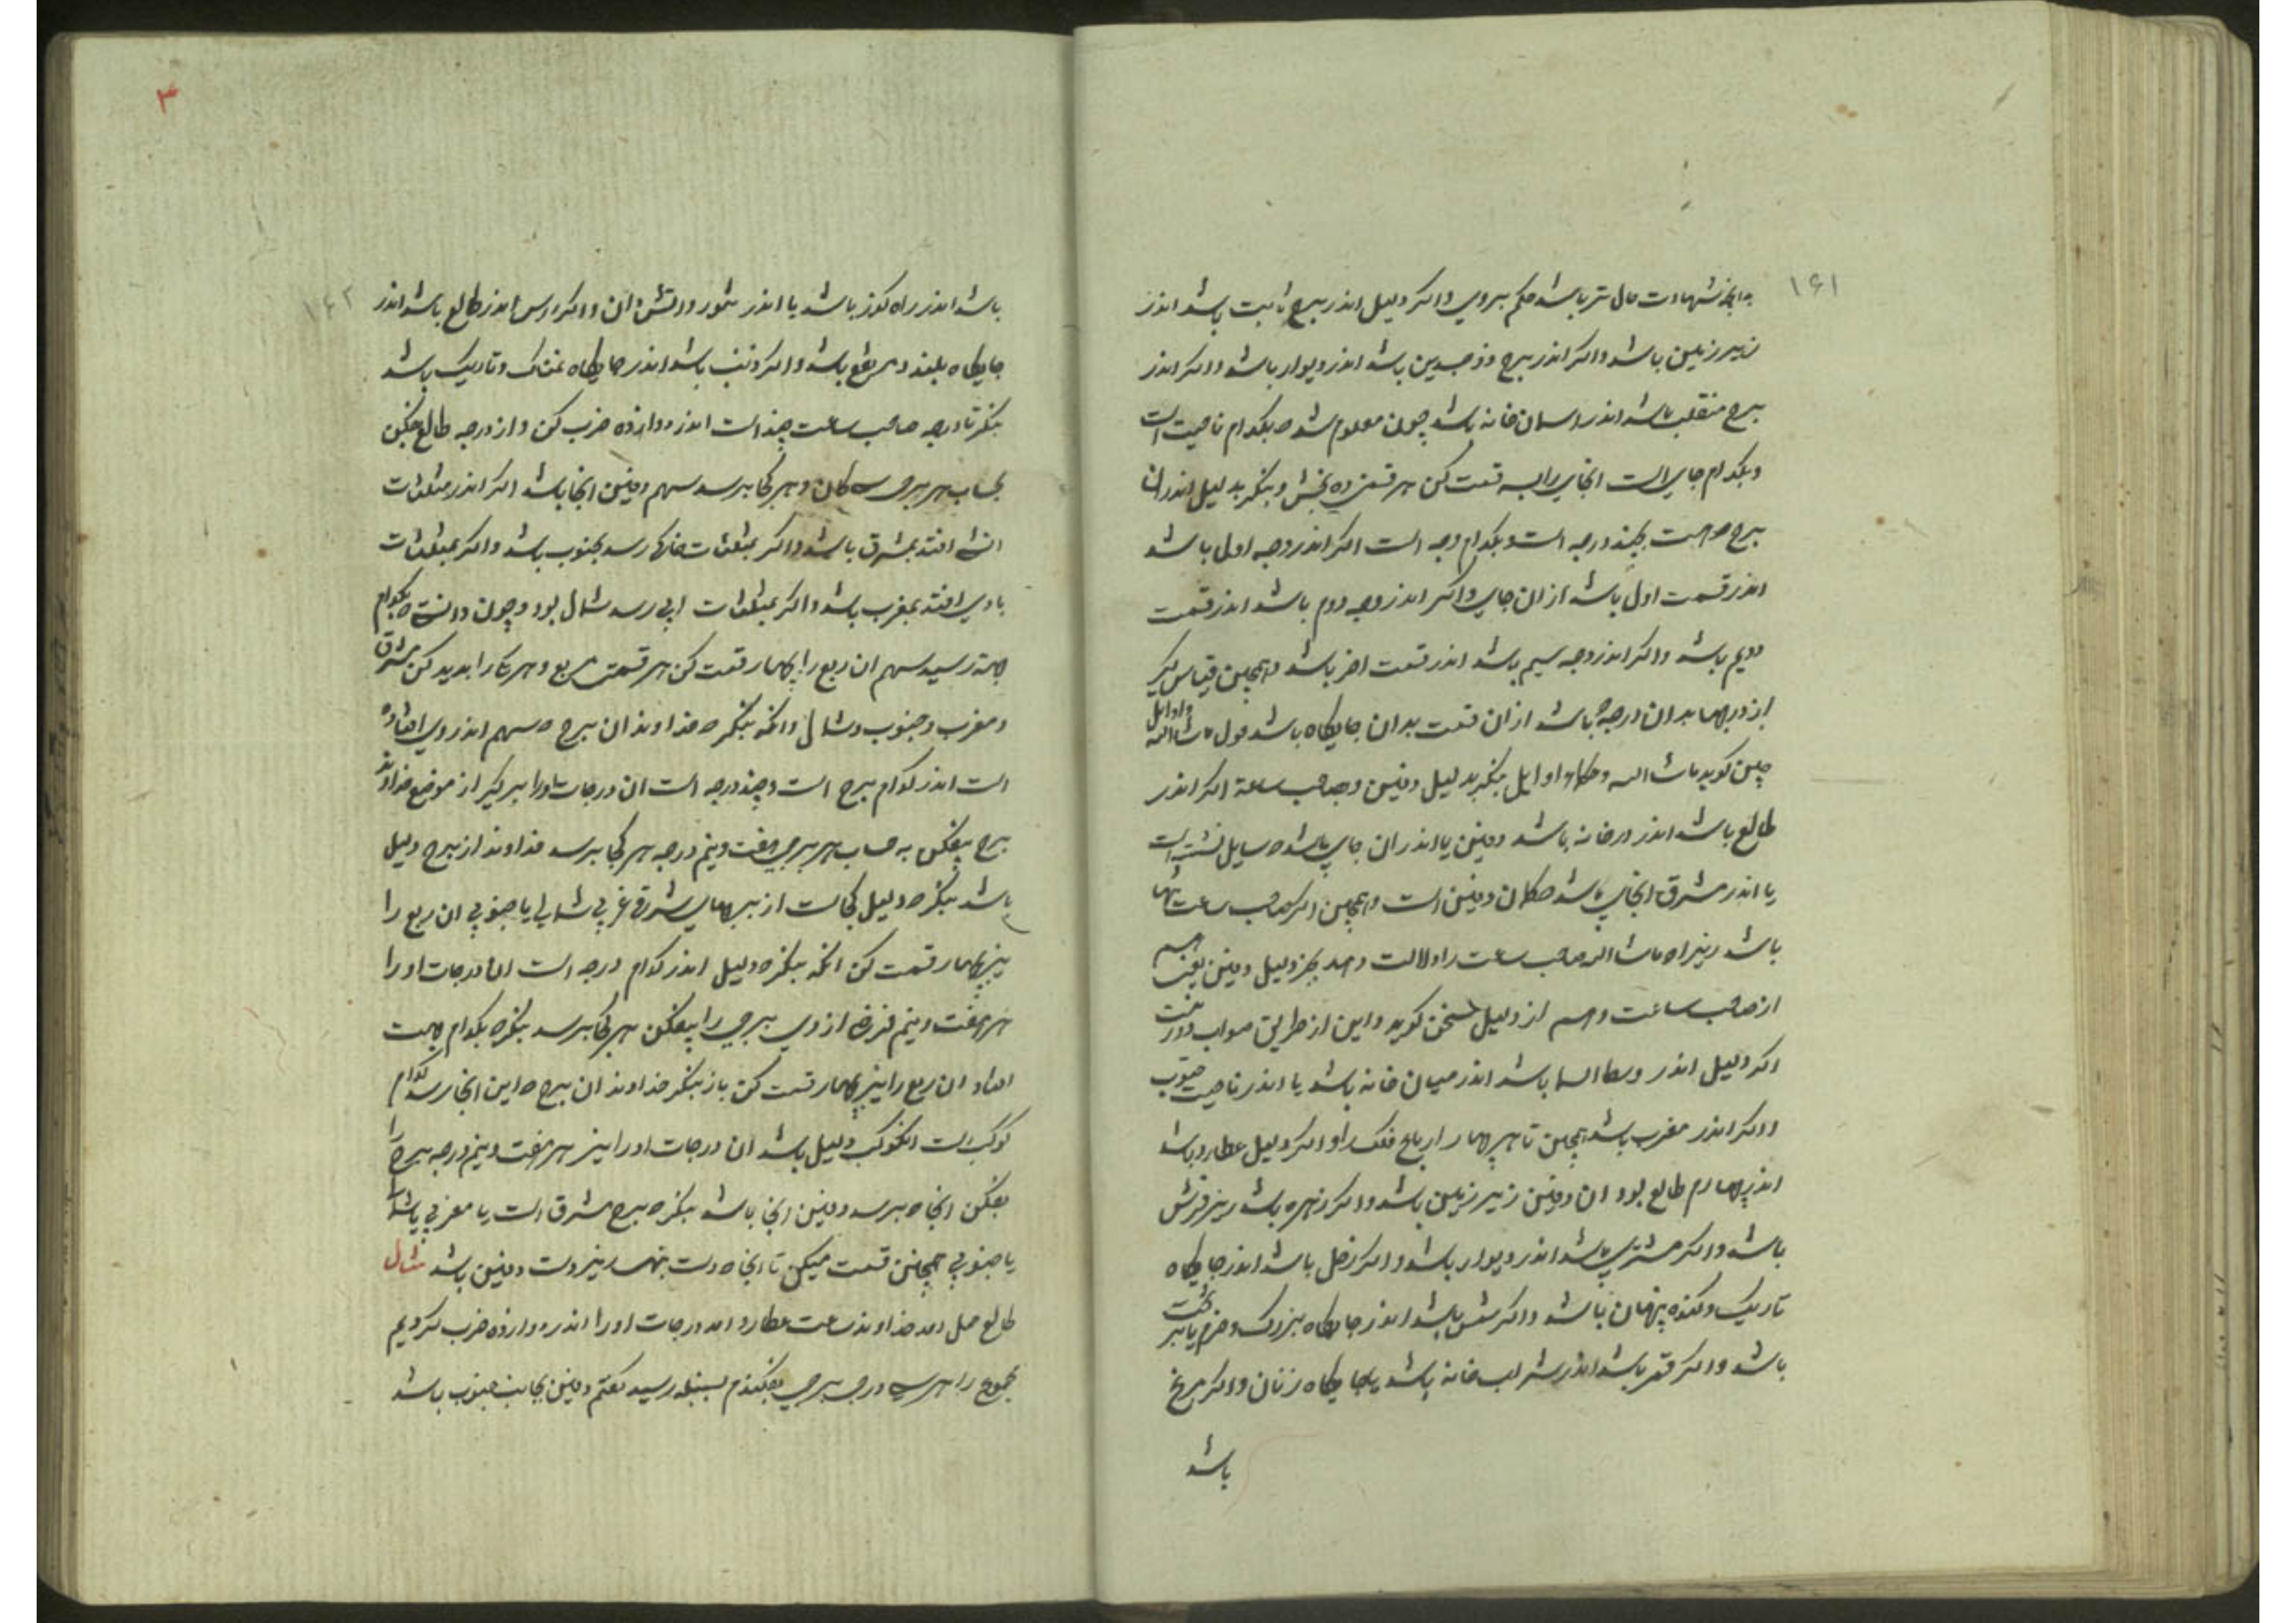 ۱۶۱
شهادت باشد حکم بر وی و اکر دلیل اندر برج ثابت باشد اندر
زیر زمین باشد و اکر اندر برج ذوجسدین باشد اندر دیوار باشد و اکر اندر
برج منقلب باشد اندر اسمان خانه باشد چون معلوم شد که بکدام ناحیت است
و بکدام جای است انجای را بسه قسمت کن هر قسمتی ده بخش و بنکر بدلیل اندران
برج که هست بچند درجه است و بکدام وجه است اکر اندر وجه اول باشد
اندر قسمت اول باشد از ان جای و اکر اندر وجه دوم باشد اندر قسمت
دویم باشد و اکر اندر وجه سیم باشد اندر قسمت اخر باشد و همچنین قیاس کیر
از دربها بدان درجه که باشد از ان قسمت بدان جایکاه باشد قول ماشاالله و اوایل
چنین کوید ماشاالله و حکماء اوایل بنکر بدلیل دفین و بصاحب ساعة اکر اندر
طالع باشد اندر در خانه باشد دفین یا اندر ان جای باشد که سایل نشسته است
یا اندر مشرق انجای باشد که مکان دفین است و همچنین اکر صاحب ساعت تنها
باشد زیراه ماشاالله صاحب ساعت را دلالت دهد بجز دلیل دفین یعنی هم
از صاحب ساعت و هم از دلیل سخن کوید و این از طریق صواب دور نیست
اکر دلیل اندر وسط السما باشد اندر میان خانه باشد یا اندر ناحیت جنوب
و اکر اندر مغرب باشد همچنین تا بهر چهار ارباع فلک را و اکر دلیل عطارد باشد
اندر چهارم طالع بود ان دفین زیر زمین باشد و اکر زهره باشد زیر فرش
باشد و اکر مشتری باشد اندر دیوار باشد و اکر زحل باشد اندر جایکاه
تاریک و کنده پنهان باشد و اکر شمس باشد اندر جایکاه بزرک و خرم یا بر تخت
باشد و اکر قمر باشد اندر شراب خانه باشد یا جایکاه زنان و اکر مریخ
باشد
۳
۱۶۲
باشد اندر راه کوز باشد یا اندر تنور و اتش دان و اکر راس اندر طالع باشد اندر
جایکاه بلند و مرتفع باشد و اکر ذنب باشد اندر جایکاه نمناک و تاریک باشد
بنکر تا درجه صاحب ساعت چند است اندر دوازده ضرب کن و از درجه طالع بفکن
بحساب هر برجی سه کان و بهر کجا برسد سهم دفین انجا باشد اکر اندر مثلثات
اتشی افتد بمشرق باشد و اکر بمثلثات خاکی رسد بجنوب باشد و اکر بمثلثات
بادی افتد بمغرب باشد و اکر بمثلثات ابی رسد شمال بود و چون دانستی که بکدام
جهة رسید سهم ان ربع را بچهار قسمت کن هر قسمتی مربع و هر یکی را بدید کن مشرق
و مغرب و جنوب و شمال و انکه بنکر که خداوند ان برج که سهم اندر وی افتاده
است اندر کدام برج است و چند درجه است ان درجات او را بر کیر از موضع خداوند
برج بیفکن به حساب هر برجی هفت و نیم درجه هر کجا برسد خداوند از برج دلیل
باشد بنکر که دلیل کجاست از برجهای شرقی غربی شمالی یا جنوبی ان ربع را
نیز بچهار قسمت کن انکه بنکر که دلیل اندر کدام درجه است ان درجات او را
هر هفت و نیم فرض از وی برجی را بیفکن هر کجا برسد بنکر که بکدام جهت
افتاد ان ربع را نیز بچهار قسمت کن باز بنکر خداوند ان برج که این انجا رسد کدام
کوکب است انکوکب دلیل باشد ان درجات او را نیز هر هفت و نیم درجه برجی را
بفکن انجا که برسد دفین انجا باشد بنکر که برج مشرق است یا مغربی یا شمالی
یا جنوبی همچنین قسمت میکن تا انجا که دست بنهد زیر دست دفین باشد مثال
طالع حمل امد خداوند ساعت عطارد امد درجات او را اندر دوازده ضرب کردیم
مجموع را هر سی درجه برجی بفکندم بسنبله رسید کفتم دفین بجانب جنوب باشد